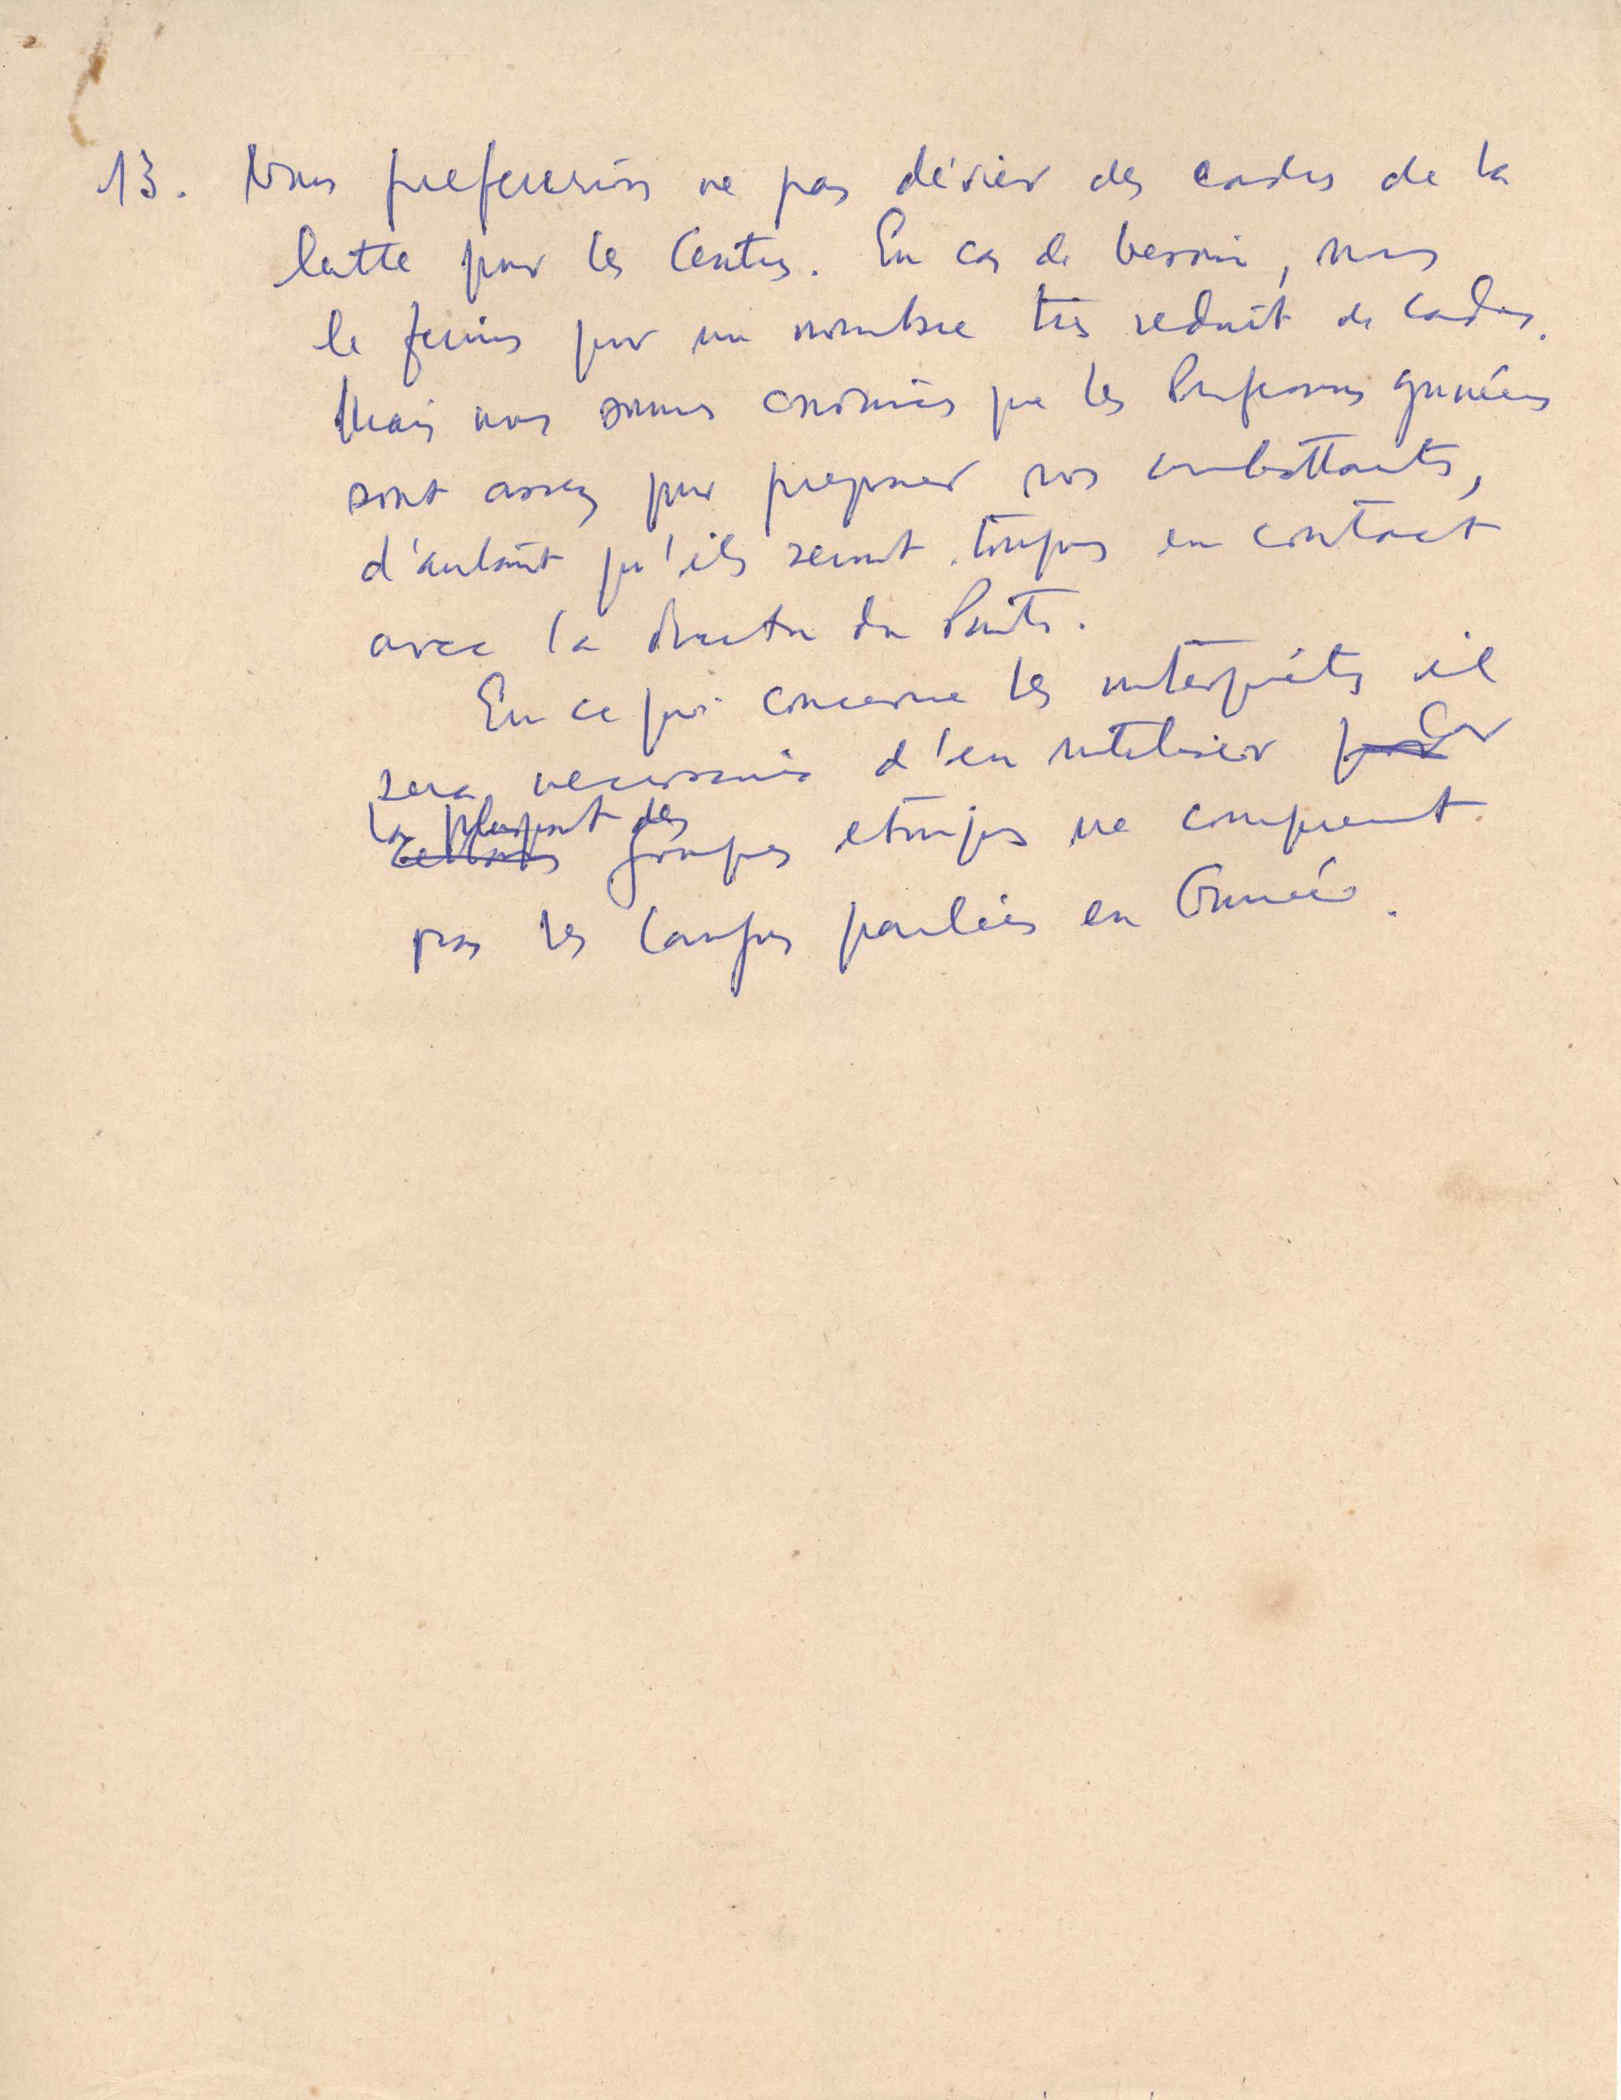 13. Nous prefererions ne pas dévier des cadres de la
lutte pour les Centres. En cas de besoin, nous
le ferions pour un nombre très reduit de cadres.
Mais nous sommes convaincus que les Professeurs guinéens
sont assez pour preparer nos combattants,
d'autant qu'ils seront toujours en contact
avec la direction du Parti.
En ce qui concerne les interprètes il
sera necessaire d'en utiliser car
la plupart des
groupes etniques ne comprennent
pas les langues parlées en Guinée.